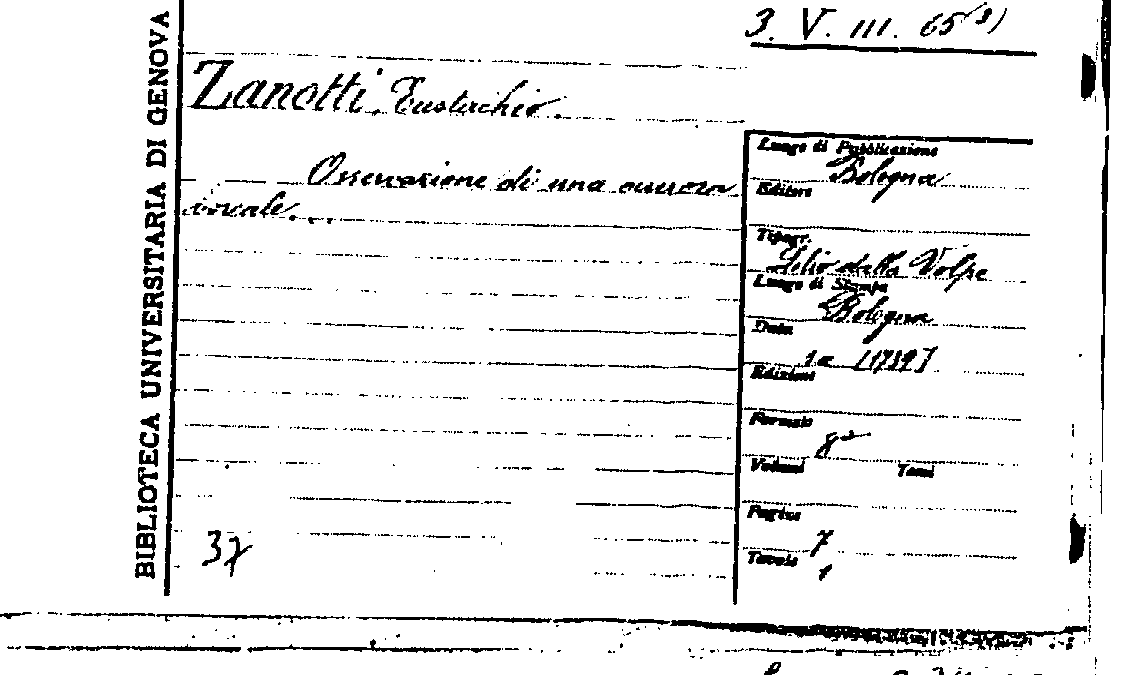 3. V. III. 65(3)
BIBLIOTECA UNIVERSITARIA DI GENOVA
Zanotti, Eustachio.
Osservazione di una aurora
boreale...
Luogo di Pubblicazione
Bologna
Editore
Tipogr.
Lelio dalla Volpe
Luogo di Stampa
Bologna
Data
1a [1739]
Edizione
Formato
8°
Volumi Tomi
Pagine
7
Tavole
1
37